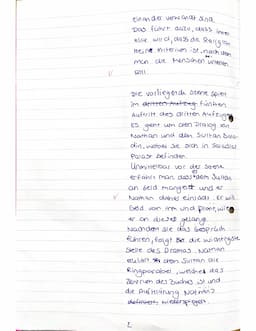 einander verwandt sind.
Das führt dazu, dass ihnen
klar wird, dass die Religion
keine Kriterium ist, nach dem
man die Menschen urteilen
soll.
Die vorliegende Szene spielt
im dritten Aufzug fünften
Auftritt des dritten Aufzugs
Es geht um den Dialog von
Nathan und dem Sultan Sala-
din, wobei sie sich in Saladins
Palast befinden.
Unmittelbar vor der Szene
erfährt man dass dem Sultan
an Geld mangelt und er
Nathan einlädt, er will
Geld von ihm und plant, wie
er an dieses gelangt.
Nachdem sie das Gespräch
führen, folgt die wichtigste
Stelle des Dramas. Nathan
erzählt dem Sultan die
Ringparabel, welches das
Zentrum des Buches ist und
die Aufklärung Nathans
wiederspiegelt.
2